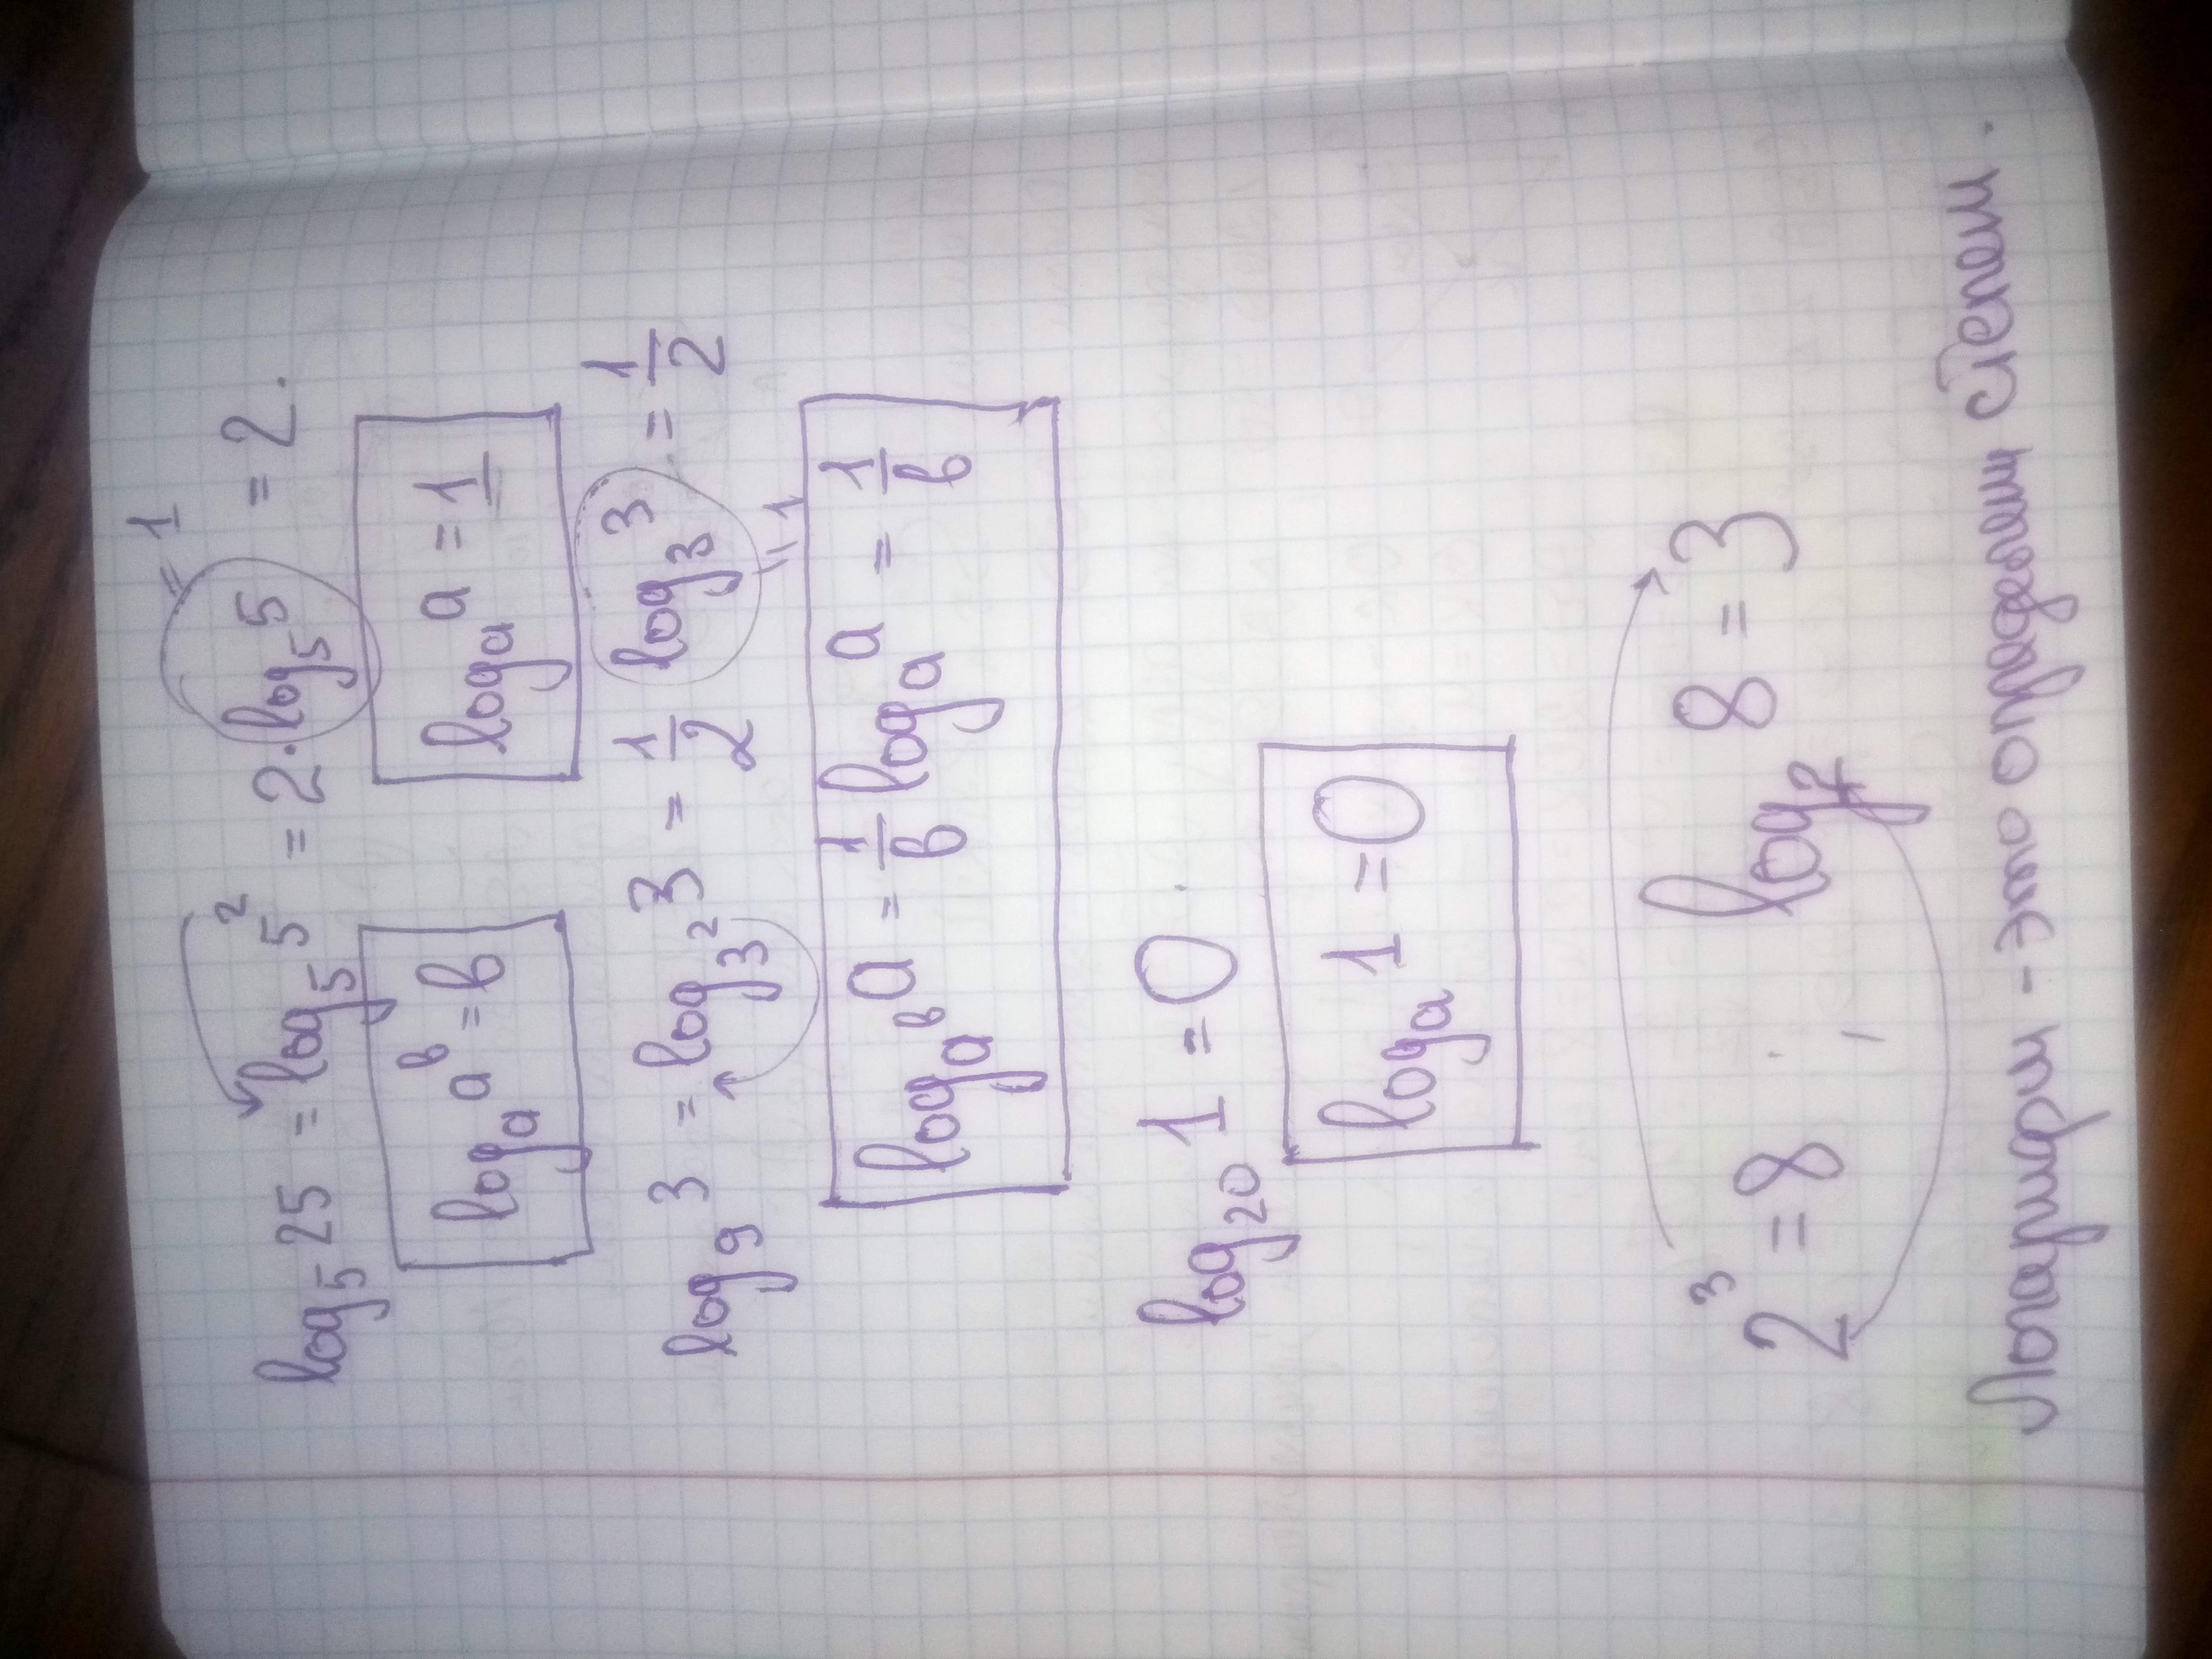 log₅25 = log₅5² = 2·log₅5 = 2.
= 1
logₐaᵇ = b
logₐa = 1
log₉3 = log₃²3 = 1/2 log₃3 = 1/2
= 1
logₐᵇa = 1/b logₐa = 1/b
log₂₀1 = 0
logₐ1 = 0
2³ = 8 log₂8 = 3
Логарифм - это определ степени.